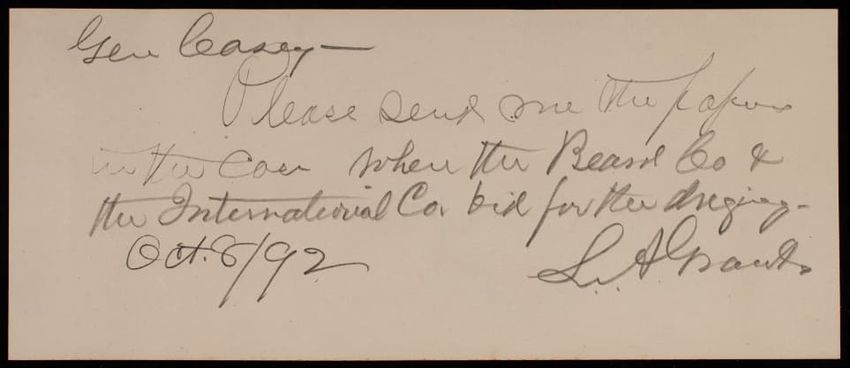 Gen Casey—
Please send me the papers
in the case where the Beard Co &
the International Co. bid for the dreging.
Oct. 8/92
L. A. Grant